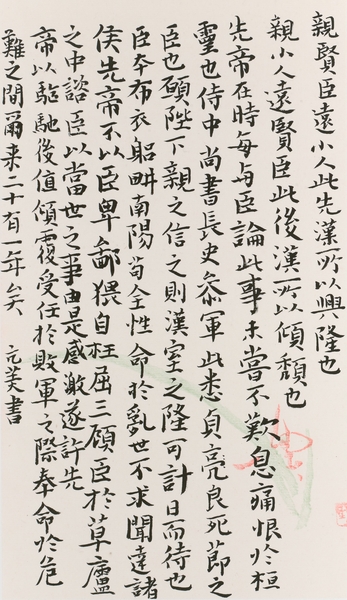 親賢臣遠小人此先漢所以興隆也
親小人遠賢臣此後漢所以傾頹也
先帝在時每与臣論此事未嘗不歎息痛恨於桓
靈也侍中尚書長史參軍此悉貞亮良死節之
臣也願陛下親之信之則漢室之隆可計日而待也
臣本布衣躬畊南陽苟全性命於亂世不求聞達諸
侯先帝不以臣卑鄙猥自枉屈三顧臣於草廬
之中諮臣以當世之事由是感激遂許先
帝以驅馳後值傾覆受任於敗軍之際奉命於危
難之間爾来二十有一年矣 元美書